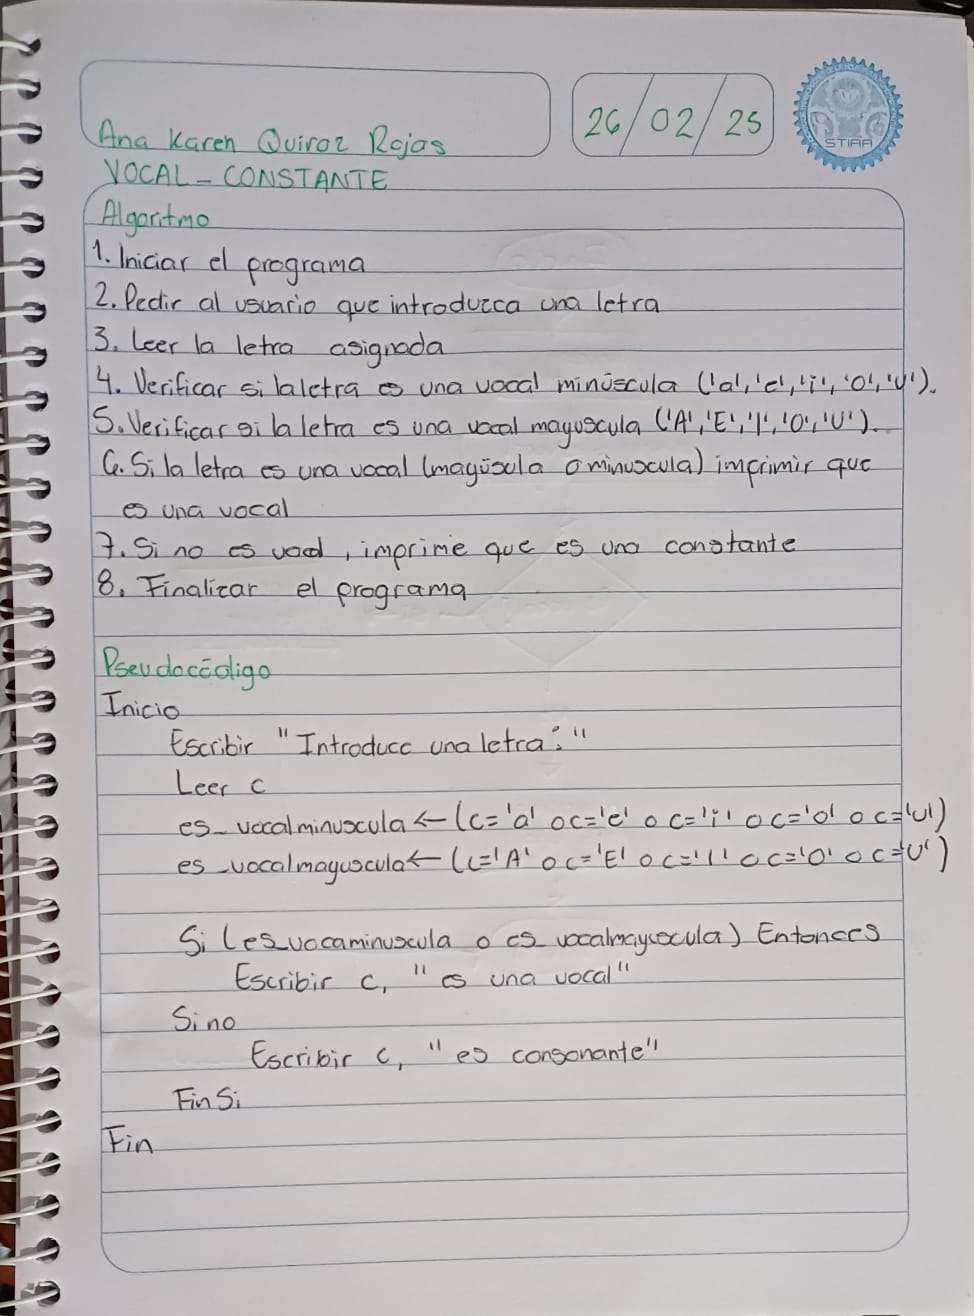 26/02/25
STIAA
Ana Karen Quiroz Rojas
VOCAL - CONSTANTE
Algoritmo
1. Iniciar el programa
2. Pedir al usuario que introduzca una letra
3. Leer la letra asignada
4. Verificar si la letra es una vocal minúscula ('a','e','i','o','u').
5. Verificar si la letra es una vocal mayuscula ('A','E','I','O','U').
6. Si la letra es una vocal (mayúscula o minuscula) imprimir que
es una vocal
7. Si no es vocal, imprime que es una constante
8. Finalizar el programa
Pseudocódigo
Inicio
Escribir "Introduce una letra:"
Leer c
es_vocalminuscula ← (c='a' o c='e' o c='i' o c='o' o c='u')
es_vocalmayuscula ← (c='A' o c='E' o c='I' o c='O' o c='U')
Si (es_vocaminuscula o es_vocalmayuscula) Entonces
Escribir c, "es una vocal"
Sino
Escribir c, "es consonante"
FinSi
Fin